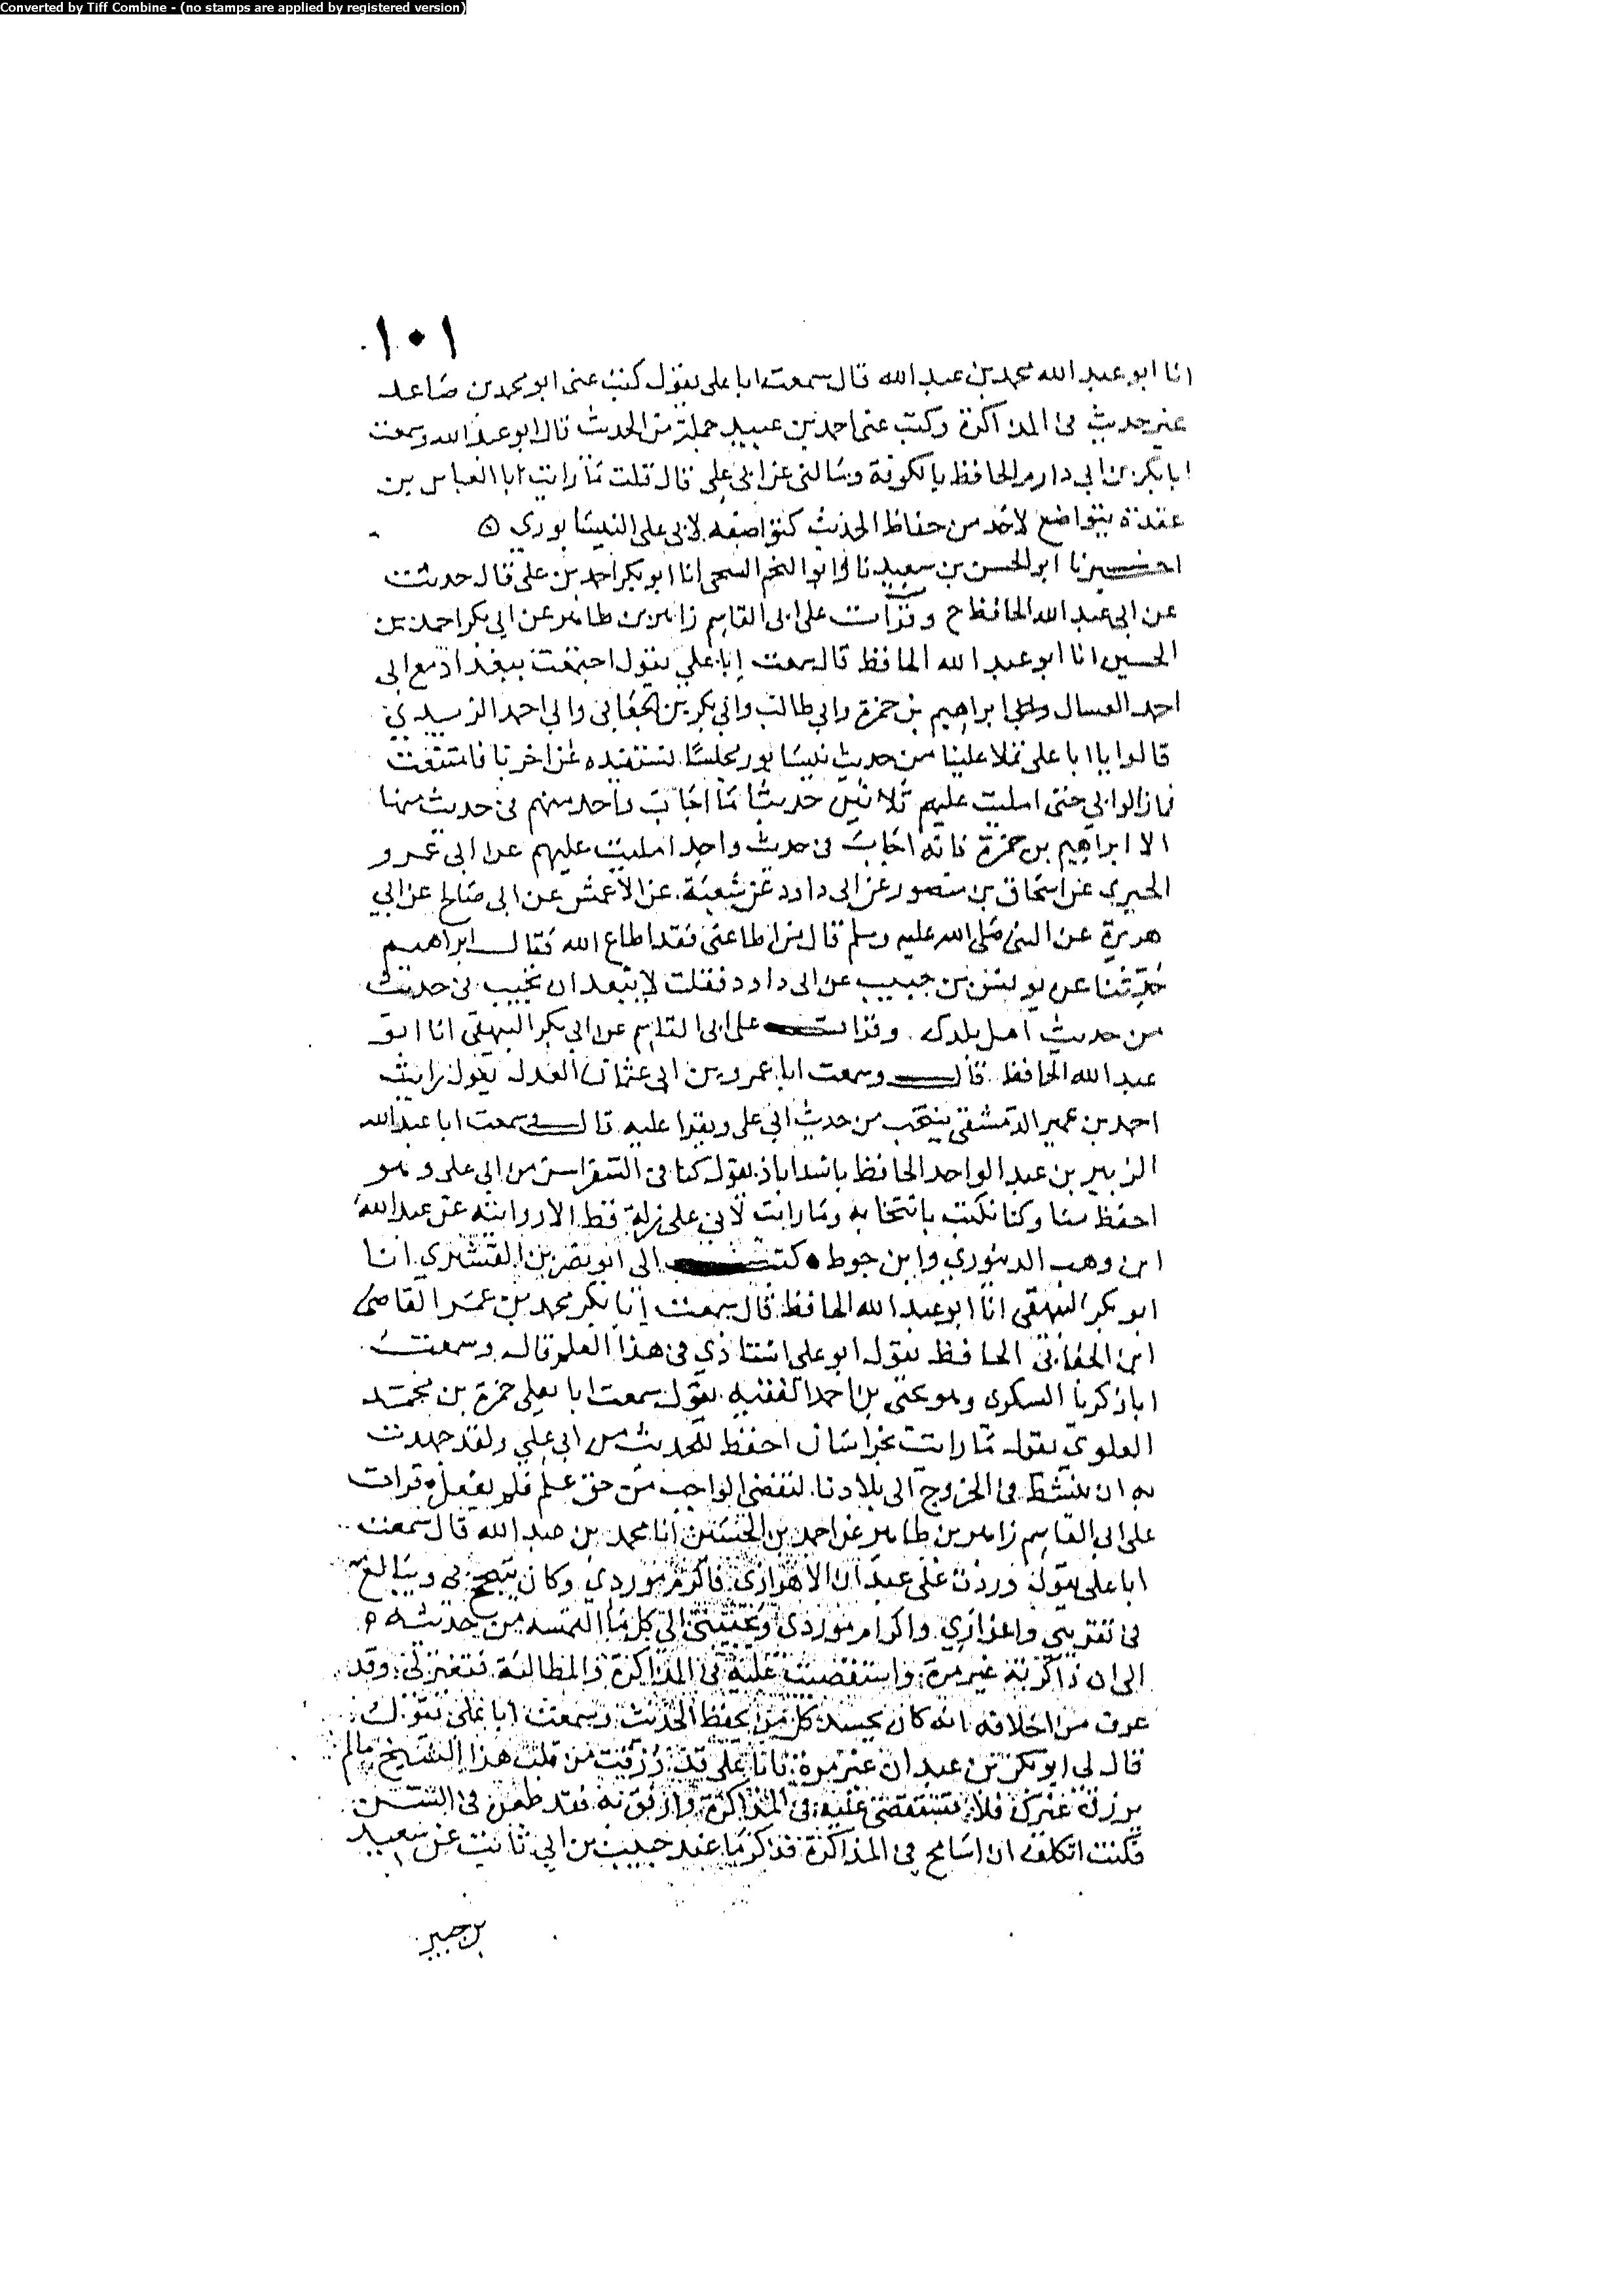 Converted by Tiff Combine - (no stamps are applied by registered version)
١٠١
انا ابو عبد الله محمد بن عبد الله قال سمعت ابا علي يقول كتب عني ابو محمد بن صاعد
غير حديث في المذاكرة وكتب عني احمد بن عمير جملة من الحديث قال ابو عبد الله وسمعت
ابا بكر بن ابي دارم الحافظ بالكوفة وسالني عن ابي علي قال قلت ما رايت ابا العباس بن
عقدة يتواضع لاحد من حفاظ الحديث كتواضعه لابي علي النيسابوري
اخبرنا ابو الحسن بن سعيد نا وابو النجم الشيحي انا ابو بكر احمد بن علي قال حدثت
عن ابي عبد الله الحافظ ح وقرات على ابي القاسم زاهر بن طاهر عن ابي بكر احمد بن
الحسين انا ابو عبد الله الحافظ قال سمعت ابا علي يقول اجتمعت ببغداد مع ابي
احمد العسال وابي ابراهيم بن حمزة وابي طالب وابي بكر بن الجعابي وابي احمد الزيدي
قالوا يا ابا علي تملا علينا من حديث نيسابور مجلسا نستفيده عن اخرنا فامتنعت
فما زالوا بي حتى امليت عليهم ثلاثين حديثا ما اجاب واحد منهم في حديث منها
الا ابراهيم بن حمزة فانه اجاب في حديث واحد امليت عليهم عن ابي عمرو
الحيري عن اسحاق بن منصور عن ابي داود عن شعبة عن الاعمش عن ابي صالح عن ابي
هريرة عن النبي صلى الله عليه وسلم قال من اطاعني فقد اطاع الله فقال ابراهيم
حدثنا عن يونس بن حبيب عن ابي داود فقلت لا يبعد ان تجيب في حديث
من حديث اهل بلدك وقرات على ابي القاسم عن ابي بكر البيهقي انا ابو
عبد الله الحافظ قال وسمعت ابا عمرو بن ابي عثمان العدل يقول رايت
احمد بن عمير الدمشقي ينتخب من حديث ابي علي ويقرا عليه قال وسمعت ابا عبد الله
الزبير بن عبد الواحد الحافظ باسداباذ يقول كنا في السفر اسن من ابي علي وهو
احفظ منا وكنا نكتب بانتخابه وما رايت لابي علي زلة قط الا روايته عن عبد الله
ابن وهب الدينوري وابن جوصا كتب الي ابو نصر بن القشيري انا
ابو بكر البيهقي انا ابو عبد الله الحافظ قال سمعت ابا بكر محمد بن عمر القاضي
ابن الجعابي الحافظ يقول ابو علي استاذي في هذا العلم قال وسمعت
ابا زكريا السكري وهو يحيى بن احمد الفقيه يقول سمعت ابا يعلى حمزة بن محمد
العلوي يقول ما رايت بخراسان احفظ للحديث من ابي علي ولقد جهدت
به ان ينشط في الخروج الى بلادنا لنقضي الواجب من حق علمه فلم يفعل قرات
على ابي القاسم زاهر بن طاهر عن احمد بن الحسين انا محمد بن عبد الله قال سمعت
ابا علي يقول وردت على عبدان الاهوازي فاكرم موردي وكان يتبجح بي ويبالغ
في تقريبي واعزازي واكرام موردي ويجيبني الى كل ما التمسه من حديثه
الى ان ذاكرته غير مرة واستقصيت عليه في المذاكرة والمطالبة فتغير لي وقد
عرف من اخلاقه انه كان يحسد كل من يحفظ الحديث وسمعت ابا علي يقول
قال لي ابو بكر بن عبدان غير مرة يا ابا علي قد رزقت من قلب هذا الشيخ ما لم
يرزق غيرك فلا تستقصي عليه في المذاكرة وارفق به فقد طعن في السن
فكنت اتكلف ان اسامح في المذاكرة فذاكرنا عند حبيب بن ابي ثابت عن سعيد
بن جبير